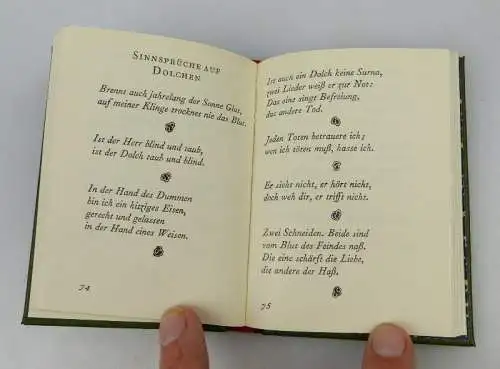 SINNSPRÜCHE AUF
DOLCHEN
Brennt auch jahrelang der Sonne Glut,
auf meiner Klinge trocknet nie das Blut.
Ist der Herr blind und taub,
ist der Dolch taub und blind.
In der Hand des Dummen
bin ich ein hitziges Eisen,
gerecht und gelassen
in der Hand eines Weisen.
74
Ist auch ein Dolch keine Surna,
zwei Lieder weiß er zur Not:
Das eine singt Befreiung,
das andere Tod.
Jeden Toten betrauere ich;
wen ich töten muß, hasse ich.
Er sieht nicht, er hört nicht,
doch weh dir, er trifft nicht.
Zwei Schneiden. Beide sind
vom Blut des Feindes naß.
Die eine schärft die Liebe,
die andere der Haß.
75